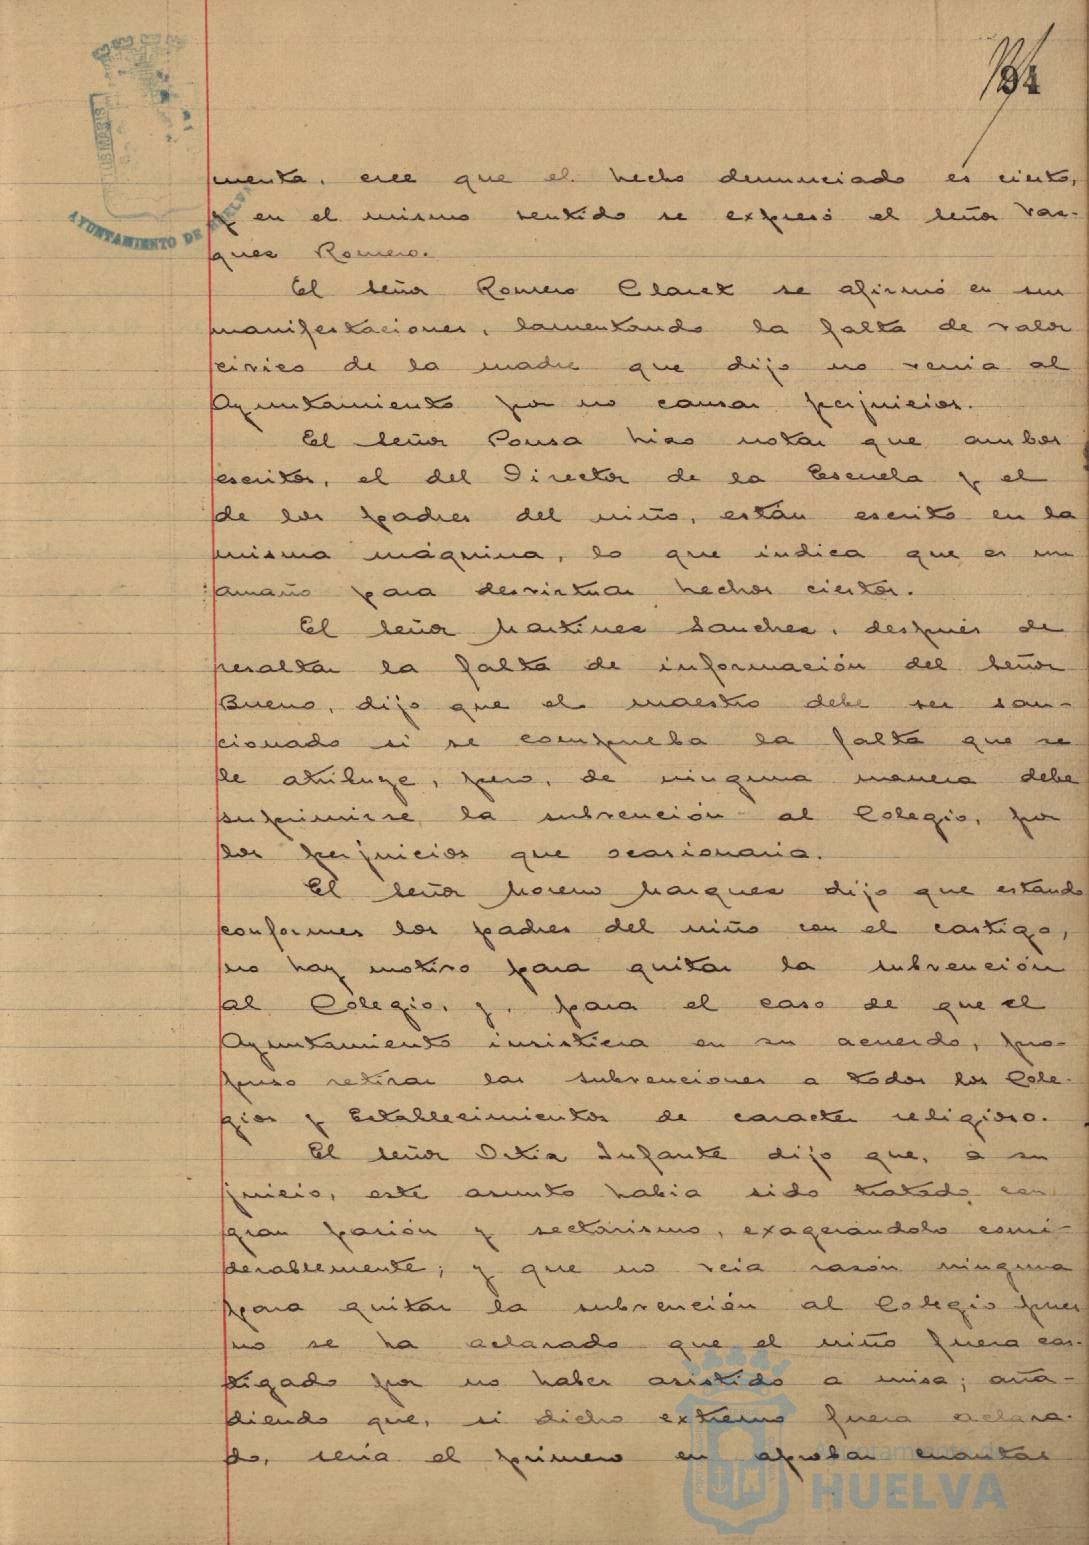 94
LUS MARIS
AYUNTAMIENTO DE HUELVA
menta, cree que el hecho denunciado es cierto,
y en el mismo sentido se expresó el señor Vas-
ques Romero.
El señor Romero Claret se afirmó en sus
manifestaciones, lamentando la falta de valor
civico de la madre que dijo no venia al
Ayuntamiento por no causar perjuicios.
El señor Pousa hizo notar que ambos
escritos, el del Director de la Escuela y el
de los padres del niño, están escrito en la
misma máquina, lo que indica que es un
amaño para desvirtuar hechos ciertos.
El señor Martinez Sanchez, después de
resaltar la falta de información del señor
Bueno, dijo que el maestro debe ser san-
cionado si se comprueba la falta que se
le atribuye, pero, de ninguna manera debe
suprimirse la subvención al Colegio, por
los perjuicios que ocasionaria.
El señor Moreno Marquez dijo que estando
conformes los padres del niño con el castigo,
no hay motivo para quitar la subvención
al Colegio, y, para el caso de que el
Ayuntamiento insistiera en su acuerdo, pro-
puso retirar las subvenciones a todos los Cole-
gios y Establecimientos de caracter religioso.
El señor Ortiz Infante dijo que, a su
juicio, este asunto habia sido tratado con
gran pasión y sectarismo, exagerandolo consi-
derablemente; y que no veia razón ninguna
para quitar la subvención al Colegio pues
no se ha aclarado que el niño fuera cas-
tigado por no haber asistido a misa; aña-
diendo que, si dicho extremo fuera aclara-
do, seria el primero en aprobar cuantas
Ayuntamiento de
HUELVA